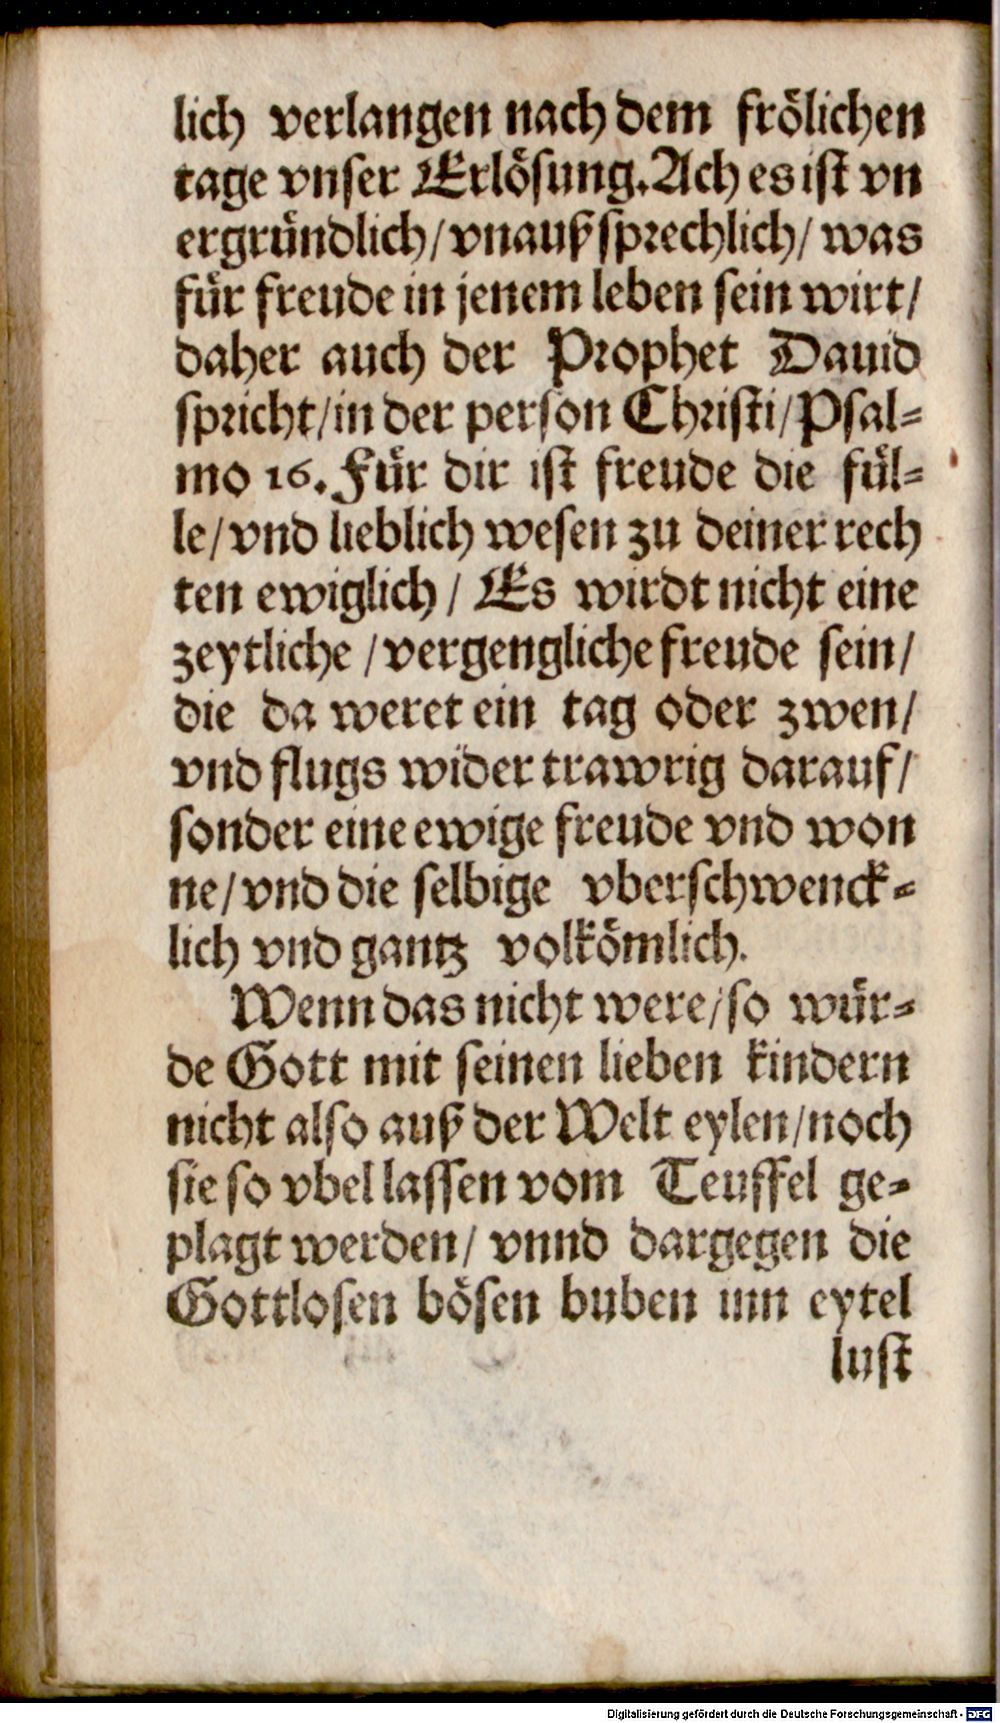 lich verlangen nach dem frölichen
tage vnser Erlösung. Ach es ist vn
ergründlich/ vnaußsprechlich/ was
für freude in jenem leben sein wirt/
daher auch der Prophet Dauid
spricht/ in der person Christi/ Psal⸗
mo 16. Für dir ist freude die fül⸗
le/ vnd lieblich wesen zu deiner rech
ten ewiglich/ Es wirdt nicht eine
zeytliche/ vergengliche freude sein/
die da weret ein tag oder zwen/
vnd flugs wider trawrig darauf/
sonder eine ewige freude vnd won
ne/ vnd die selbige vberschwenck⸗
lich vnd gantz volkömlich.
Wenn das nicht were/ so wür⸗
de Gott mit seinen lieben kindern
nicht also auß der Welt eylen/ noch
sie so vbel lassen vom Teuffel ge⸗
plagt werden/ vnnd dargegen die
Gottlosen bösen buben inn eytel
lust
Digitalisierung gefördert durch die Deutsche Forschungsgemeinschaft - DFG